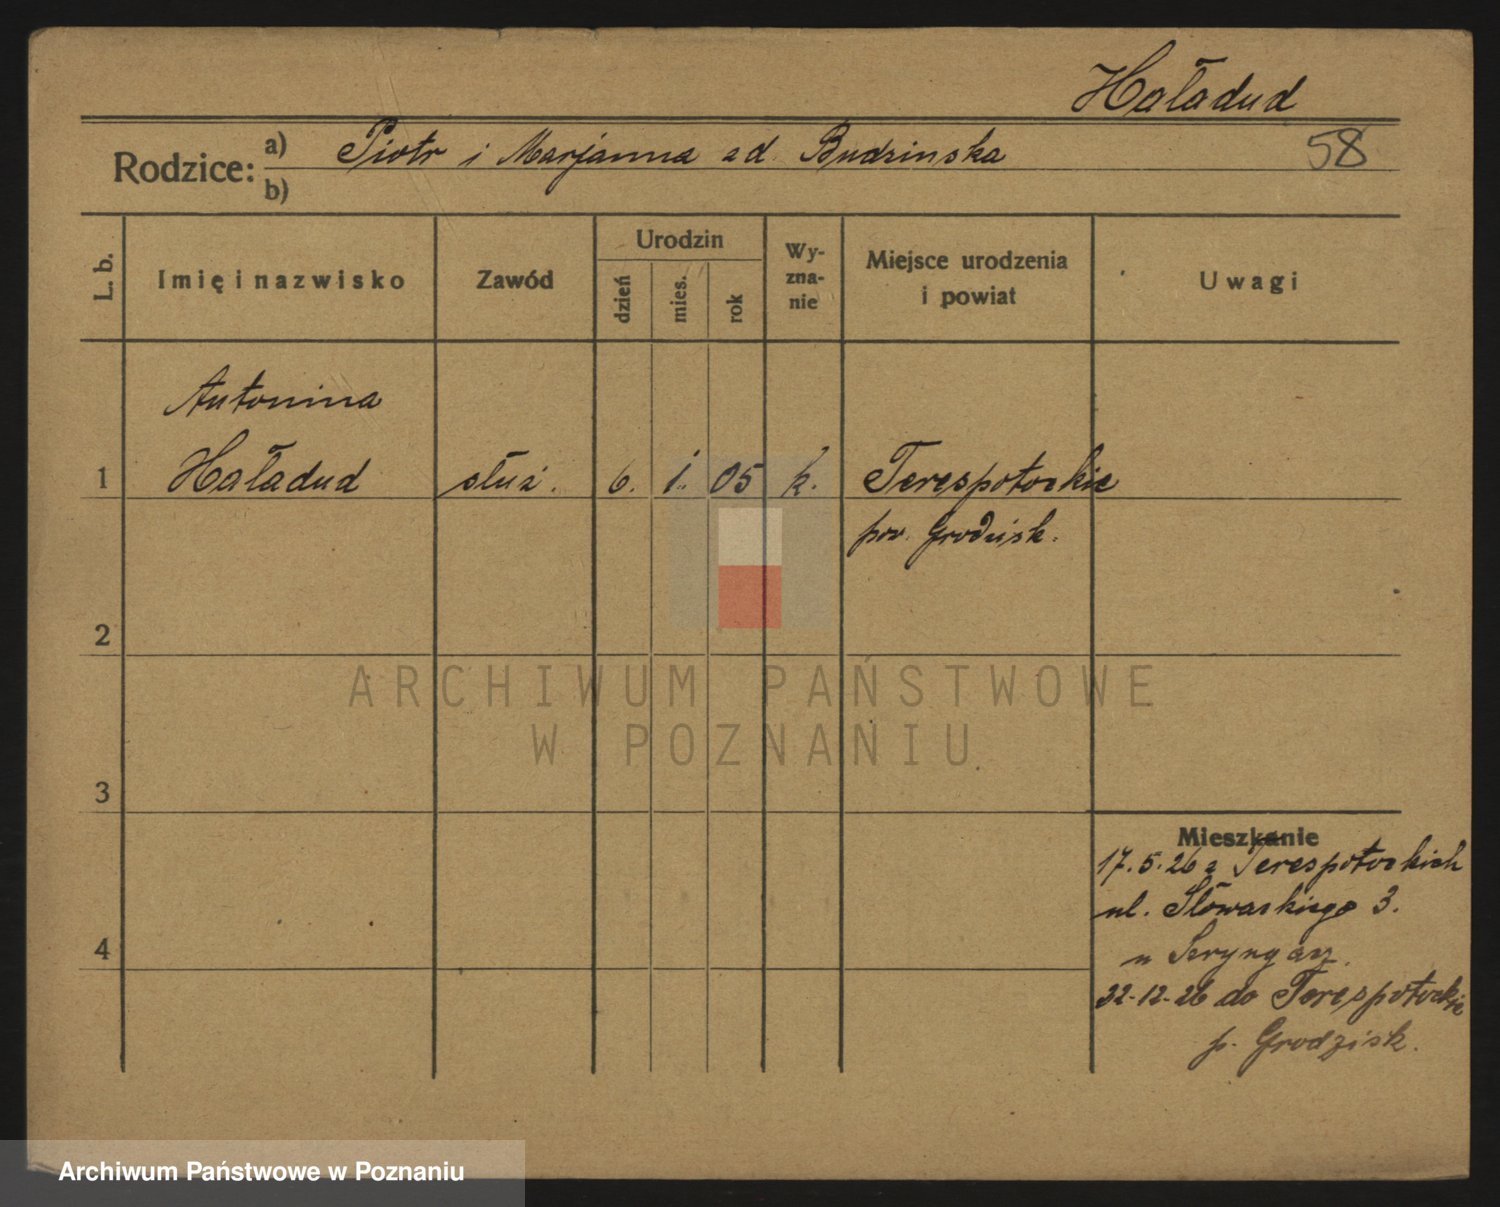 Haładud
58
Rodzice: a) Piotr i Marjanna zd. Budzinska
b)
L. b.
Imię i nazwisko
Zawód
Urodzin
dzień
mies.
rok
Wy-
zna-
nie
Miejsce urodzenia
i powiat
Uwagi
Antonina
1 Haładud służ. 6. 1. 05 k. Terespotockie
pow. Grodzisk.
2
3
4
Mieszkanie
17.5.26 z Terespotockich
ul. Słowackiego 3.
u
22-12-26 do Terespotockie
p. Grodzisk.
ARCHIWUM PAŃSTWOWE
W POZNANIU
Archiwum Państwowe w Poznaniu